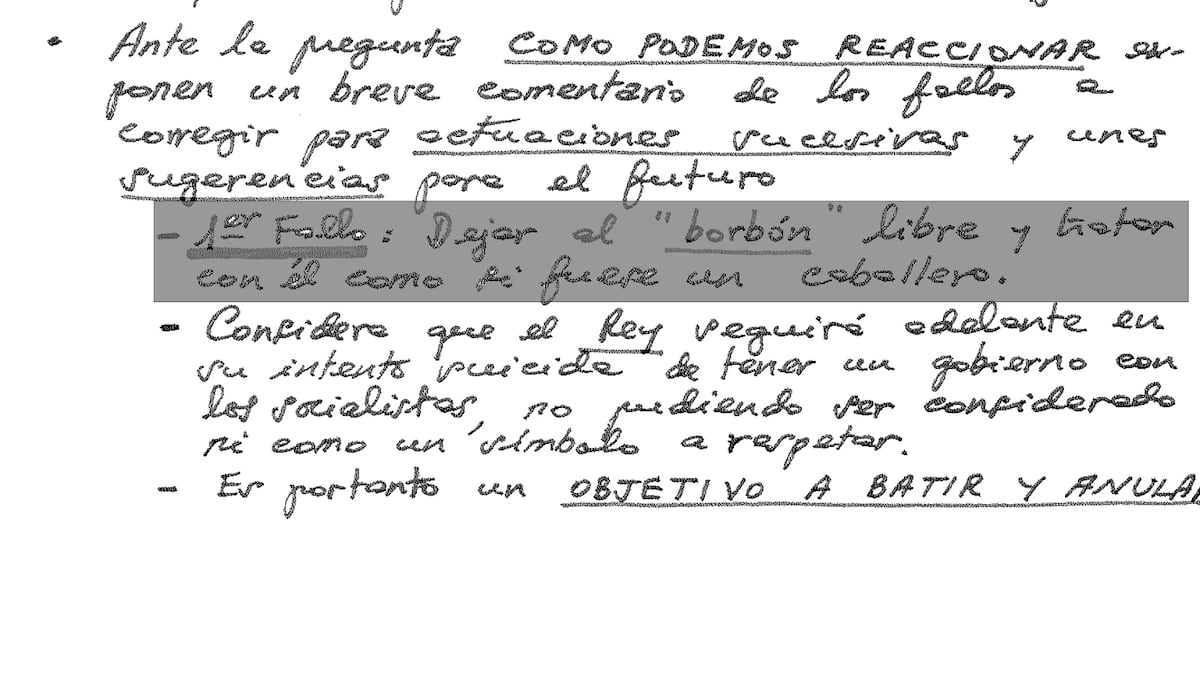 • Ante la pregunta COMO PODEMOS REACCIONAR ex-
ponen un breve comentario de los fallos a
corregir para actuaciones sucesivas y unas
sugerencias para el futuro
- 1er Fallo: Dejar al "borbón" libre y tratar
con él como si fuese un caballero.
- Considera que el Rey seguirá adelante en
su intento suicida de tener un gobierno con
los socialistas, no pudiendo ser considerado
ni como un símbolo a respetar.
- Es por tanto un OBJETIVO A BATIR Y ANULAR